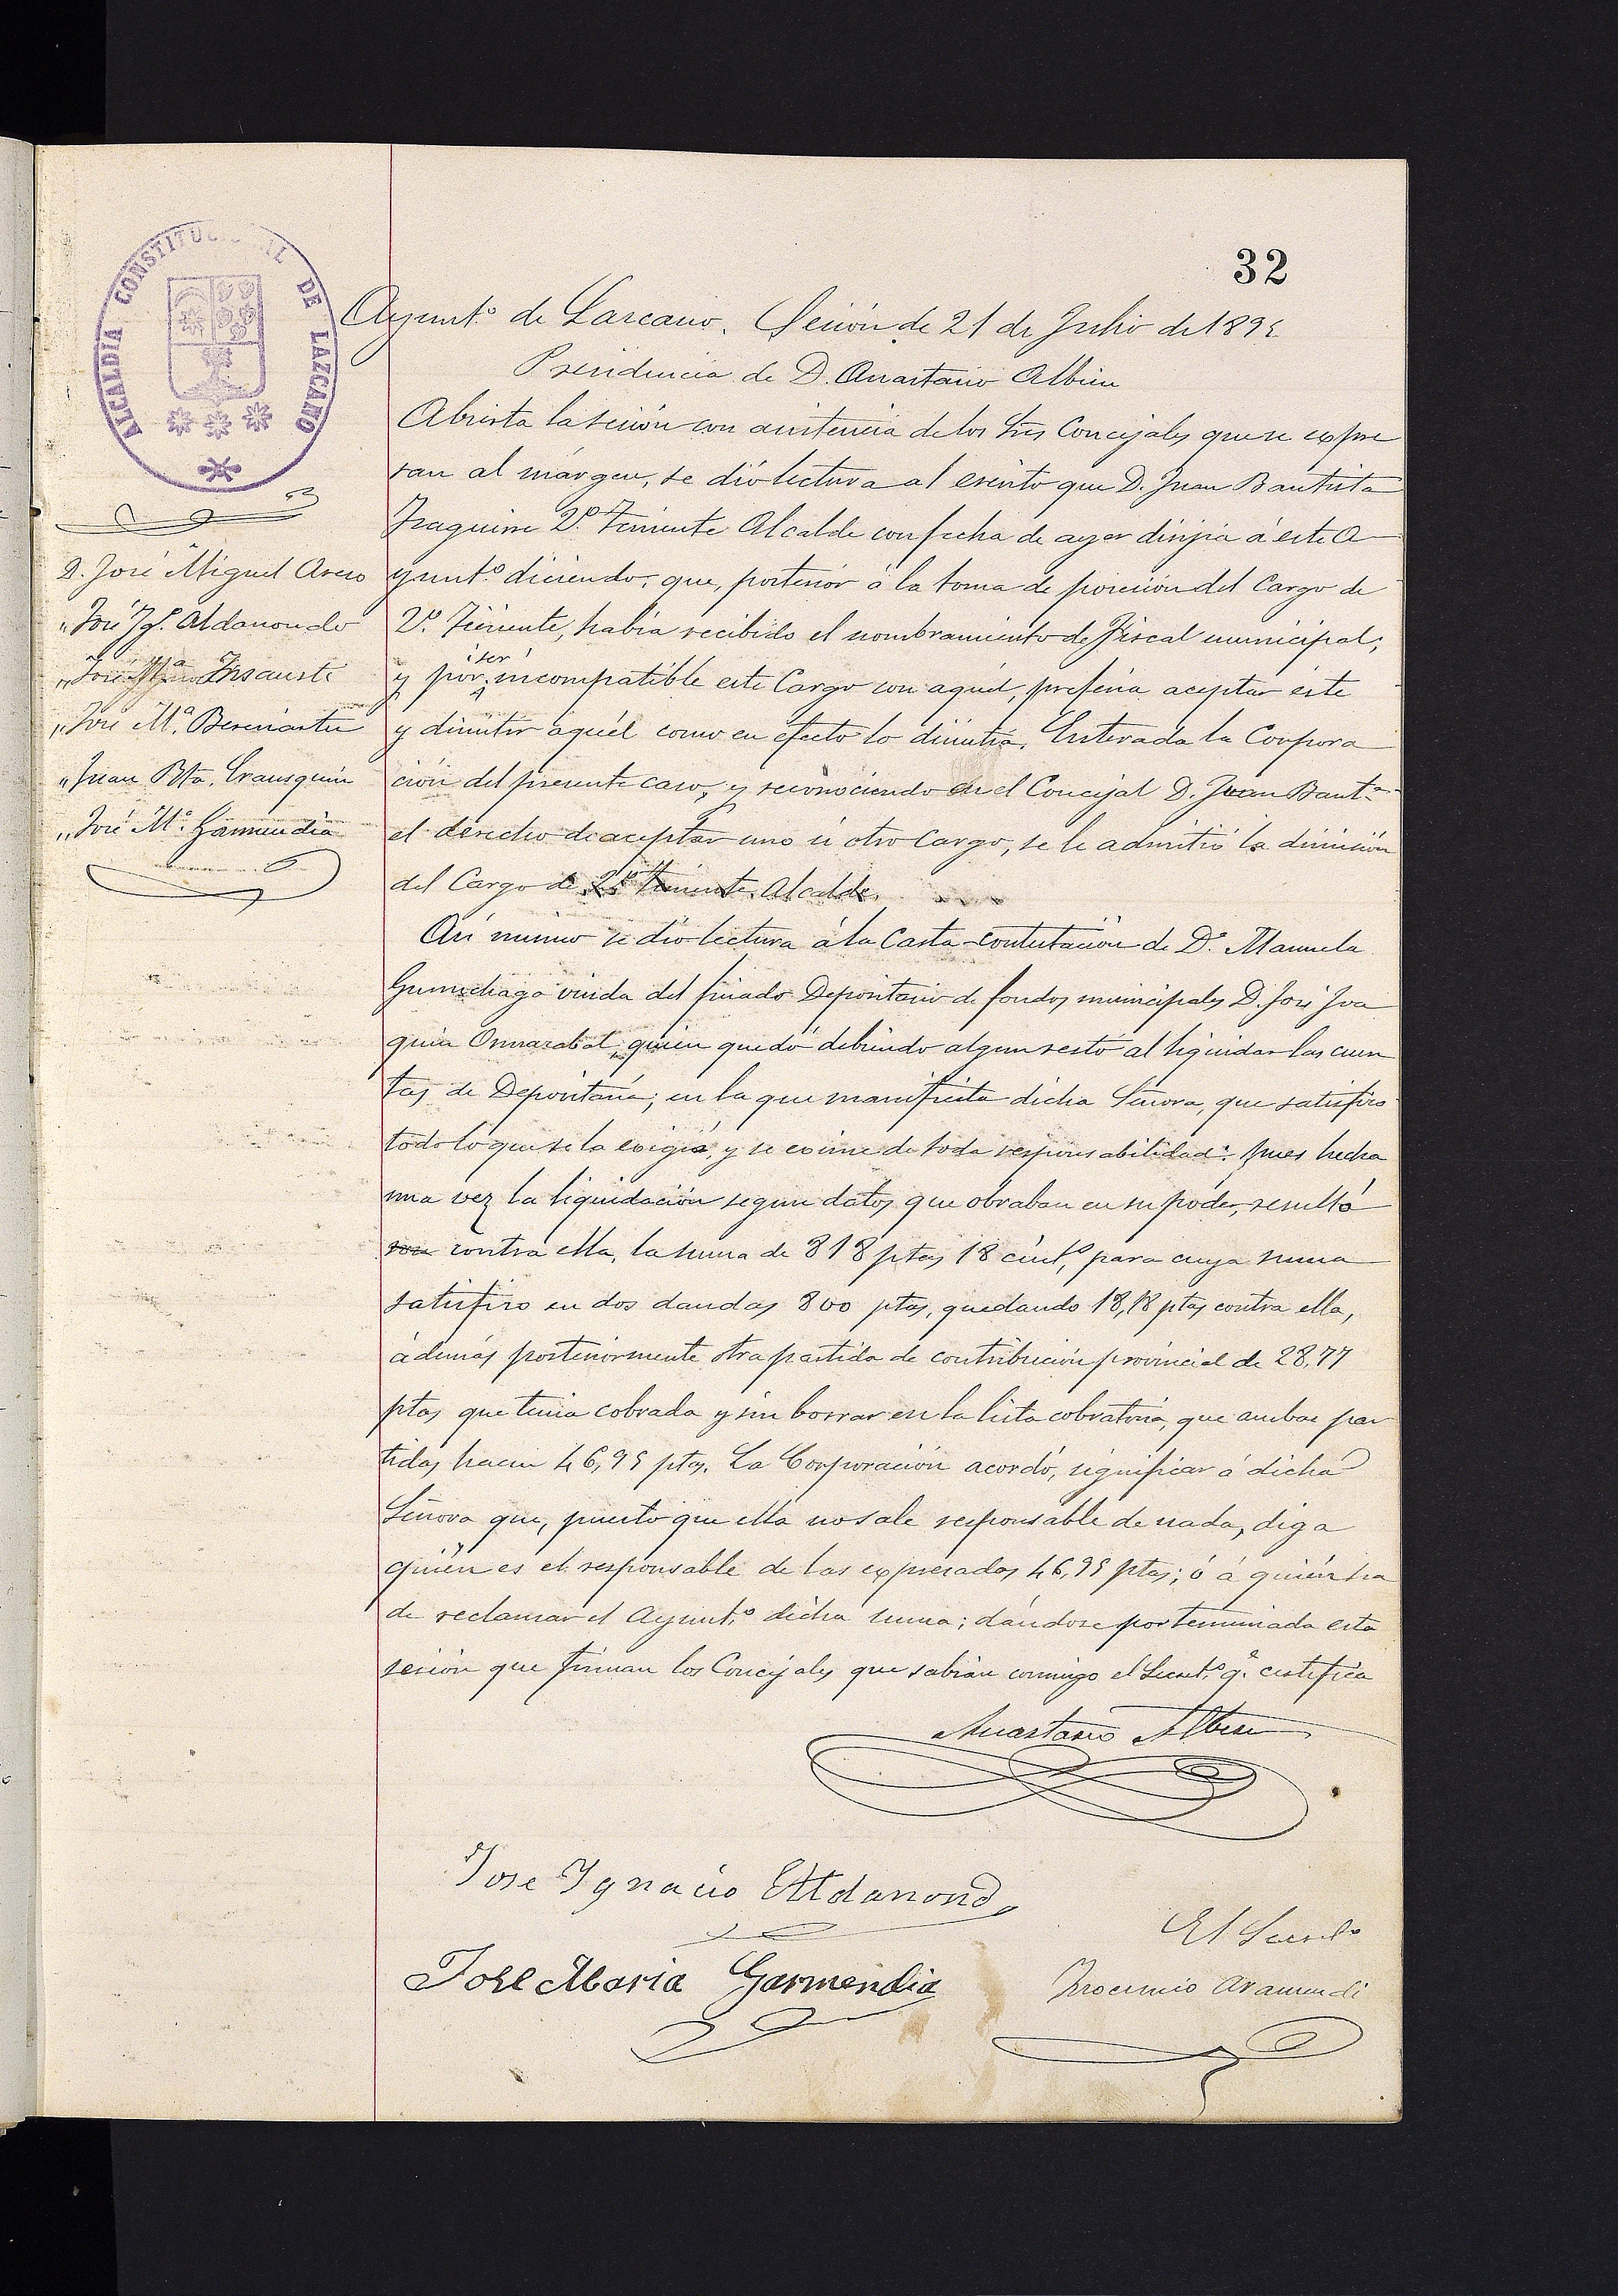 32
ALCALDÍA CONSTITUCIONAL DE LAZCANO
Ayunt.º de Lazcano. Sesión de 21 de Julio de 1895
Presidencia de D. Anastasio Albisu
D. José Miguel Areso
" José Ig.º Aldanondo
" José M.ª Insausti
" José M.ª Bereciartu
" Juan Bta. Erausquin
" José M.ª Garmendia
Abierta la sesión con asistencia de los Sres Concejales que se expre
san al márgen, se dió lectura al escrito que D. Juan Bautista
2.º Teniente Alcalde con fecha de ayer dirijia á este A
yunt.º diciendo, que, posterior á la toma de posesión del Cargo de
2.º Teniente, habia recibido el nombramiento de Fiscal municipal;
y por ser incompatible este Cargo con aquél, preferia aceptar éste
y dimitir aquél como en efecto lo dimitia. Enterada la Corpora
ción del presente caso, y reconociendo en el Concejal D. Juan Baut.ª
el derecho de aceptar uno ú otro Cargo, se le admitió la dimisión
del Cargo de 2.º Teniente Alcalde.
Asi mismo se dió lectura á la Carta-contestación de D.ª Manuela
Gurruchaga viuda del finado Depositario de fondos municipales D. José Joa
quin Ormazabal, quien quedó debiendo algun resto al liquidar las cuen
tas de Depositaría; en la que manifiesta dicha Señora, que satisfizo
todo lo que se la exigía, y se exime de toda responsabilidad: pues hecha
una vez la liquidación segun datos que obraban en su poder, resultó
contra ella, la suma de 818 ptas 18 cént.º, para cuya suma
satisfizo en dos dandas 800 ptas, quedando 18,18 ptas contra ella,
además posteriormente otra partida de contribución provincial de 28,77
ptas que tenia cobrada y sin borrar en la lista cobratoria, que ambas par
tidas hacen 46,95 ptas. La Corporación acordó, significar á dicha
Señora que, puesto que ella no sale responsable de nada, diga
quién es el responsable de las expresadas 46,95 ptas; ó á quién ha
de reclamar el Ayunt.º dicha suma; dándose por terminada esta
sesión que firman los Concejales que sabian conmigo el Secret.º q.e certifica
Anastasio Albisu
Jose Ygnacio Aldanondo
El Secret.º
Jose Maria Garmendia
Aramendi